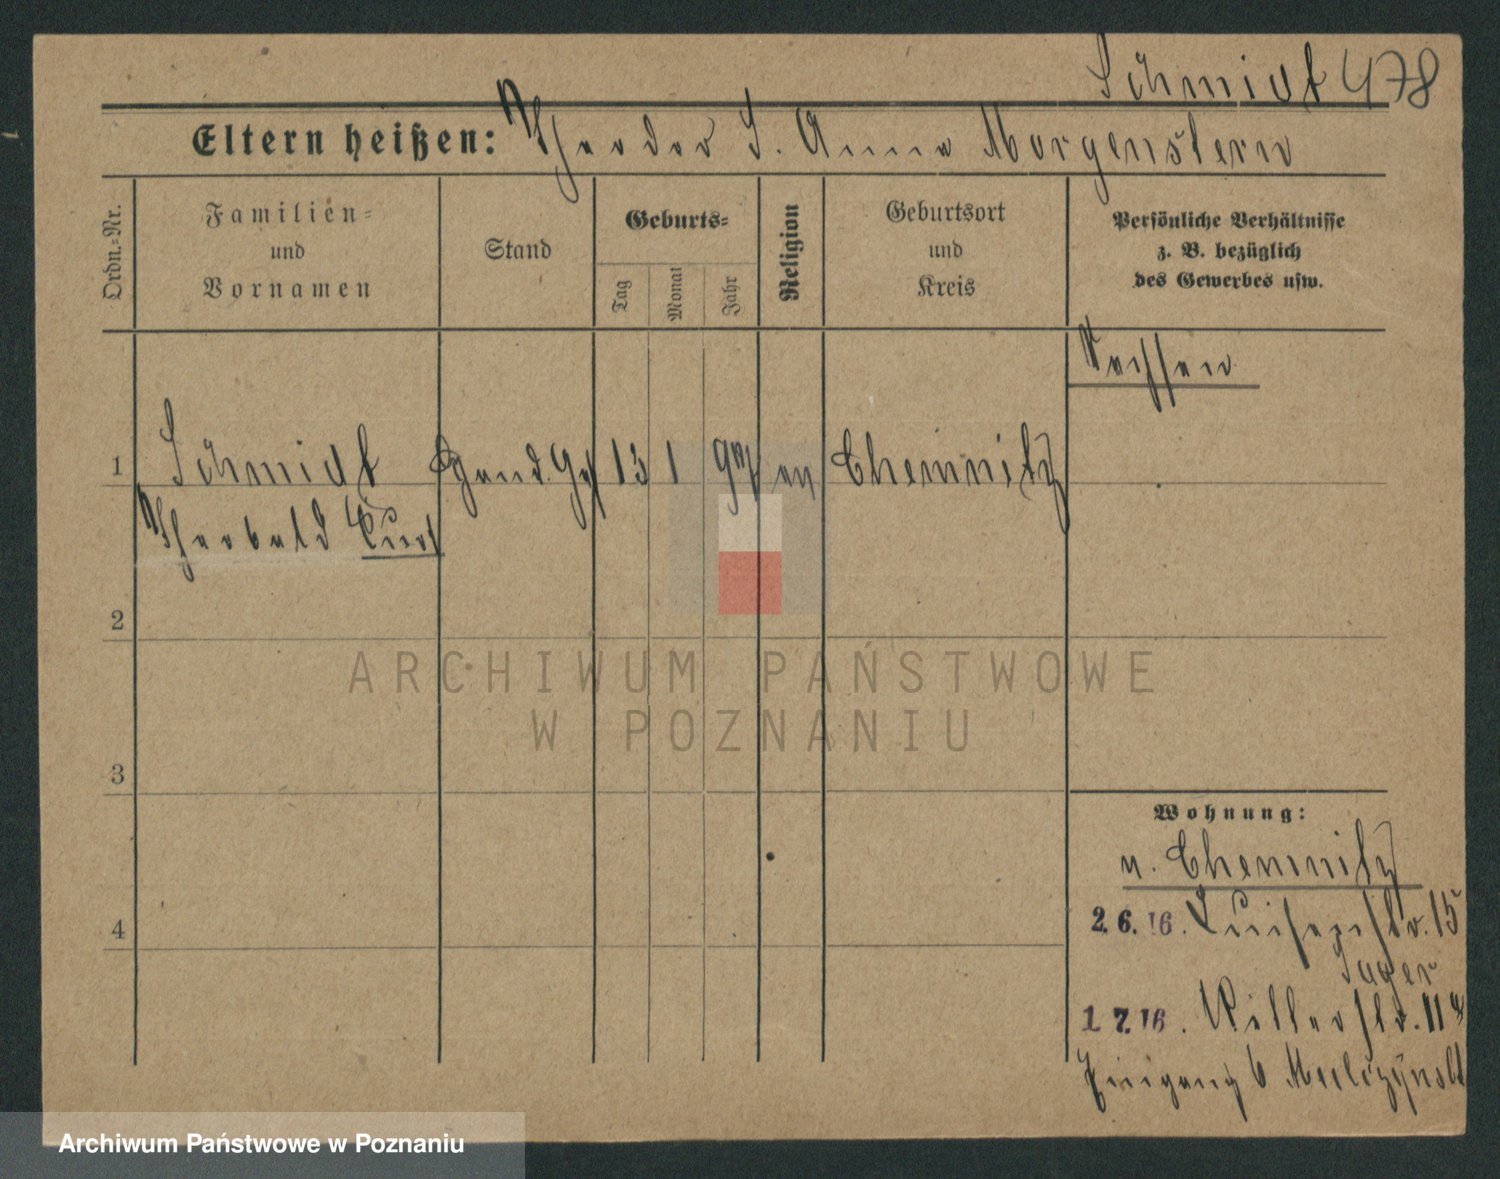 Schmidt 478
Eltern heißen: Theodor S. Anna Morgenstern
Ordn.-Nr.
Familien-
und
Vornamen
Stand
Geburts-
Tag
Monat
Jahr
Religion
Geburtsort
und
Kreis
Persönliche Verhältnisse
z. B. bezüglich
des Gewerbes usw.
Sachsen
1 Schmidt Hand. Geh 13 1 ev Chemnitz
Theobald Curt
2
ARCHIWUM PAŃSTWOWE
W POZNANIU
3
Wohnung:
v. Chemnitz
2.6.16. Luisenstr. 15
Jager
4
1.7.16. Ritterstr. 11a
Eingang b
Archiwum Państwowe w Poznaniu